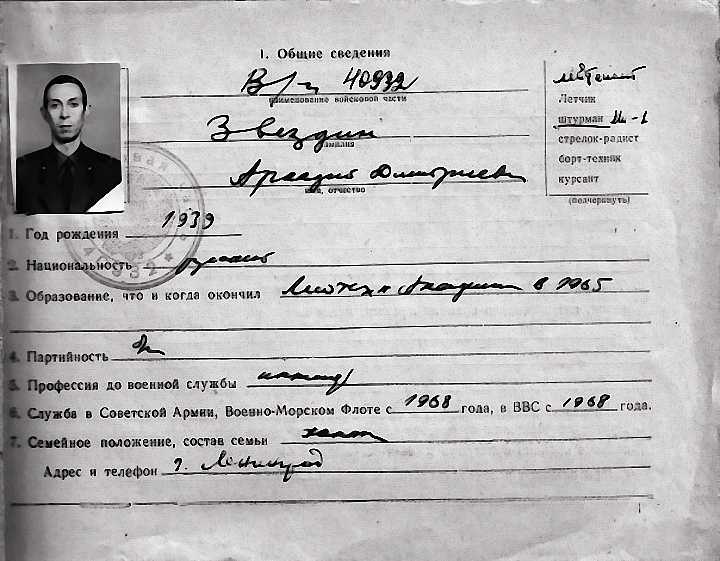 1. Общие сведения
В/ч 40932
наименование войсковой части
Звездин
фамилия
Аркадий Дмитриевич
имя, отчество
Летчик
штурман
стрелок-радист
борт-техник
курсант
(подчеркнуть)
1. Год рождения 1939
2. Национальность русский
3. Образование, что и когда окончил Академия в 1965
4. Партийность
5. Профессия до военной службы инженер
6. Служба в Советской Армии, Военно-Морском Флоте с 1968 года, в ВВС с 1968 года.
7. Семейное положение, состав семьи холост
Адрес и телефон г. Ленинград